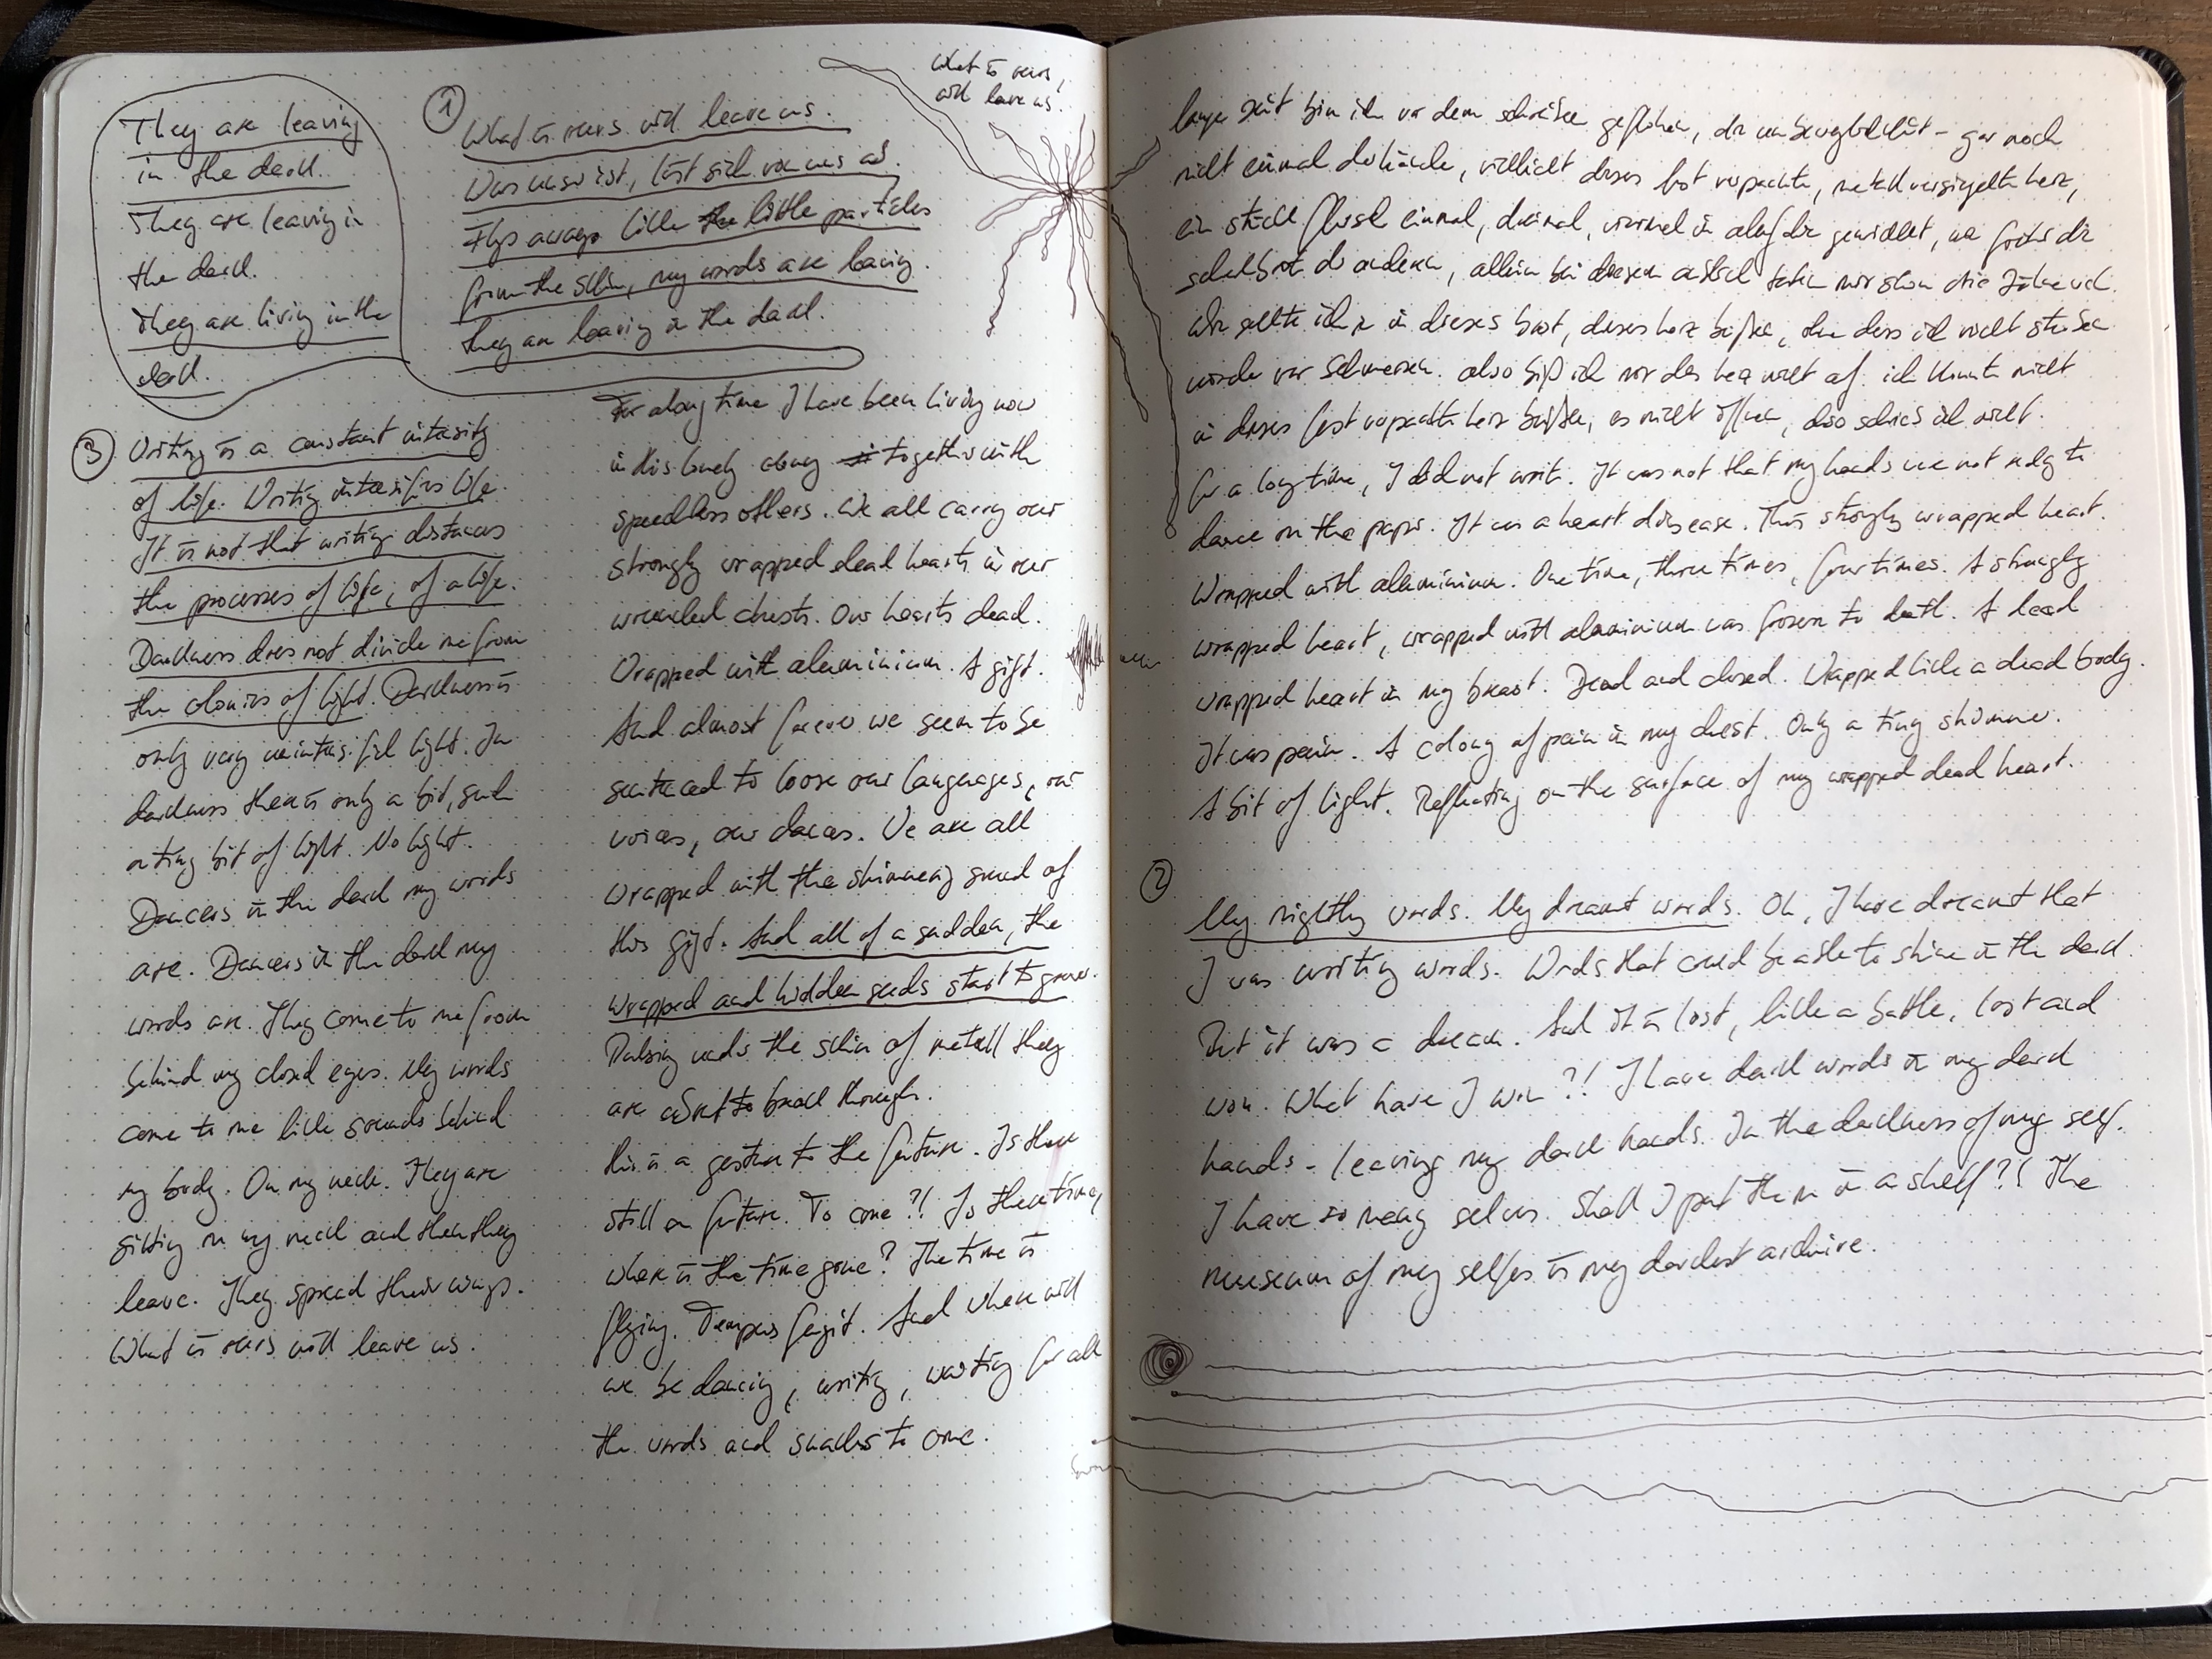 They are leaving
in the dark.
They are leaving in
the dark.
They are living in the
dark.
①
What is ours will leave us.
Was unser ist, löst sich von uns ab.
Flys away like the little particles
from the skin, my words are leaving.
they are leaving in the dark.
What is ours,
will leave us!
③
Writing is a constant intensity
of life. Writing intensifies life.
It is not that writing distances
the processes of life, of a life.
Darkness does not divide me from
the colonies of light. Darkness is
only very light. In
darkness there is only a bit, such
a tiny bit of light. No light.
Dancers in the dark my words
are. Dancers in the dark my
words are. They come to me from
behind my closed eyes. My words
come to me like sounds behind
my body. On my neck. They are
sitting on my neck and then they
leave. They spread their wings.
What is ours will leave us.
For a long time I have been living now
in this lonely colony together with
speechless others. We all carry our
strongly wrapped dead hearts in our
wounded chests. Our hearts dead.
Wrapped with aluminium. A gift.
And almost forever we seem to be
sentenced to loose our languages, our
voices, our dances. We are all
wrapped with the shimmering sound of
this gift. And all of a sudden, the
wrapped and hidden seeds start to grow.
Pulsing under the skin of metall they
are about to break through.
this is a gesture to the future. Is there
still a future. To come?! Is there time,
where is the time gone? The time is
flying. Tempus fugit. And where will
we be dancing, writing, waiting for all
the words and to come.
lange zeit bin ich vor dem schreiben geflohen, die unbeweglichkeit - gar noch
nicht einmal der hände, vielleicht dieses fest verpackte, metallversiegelte herz,
ein stück fleisch einmal, dreimal, viermal in alufolie gewickelt, wie früher die
schulbrote der anderen, allein bei diesem anblick taten mir schon die Zähne weh.
wie sollte ich je in dieses brot, dieses herz beißen, ohne dass ich nicht sterben
würde vor schmerzen. also biß ich mir das herz nicht auf. ich konnte nicht
in dieses fest verpackte herz beißen, es nicht öffnen, also schrieb ich nicht.
for a long time, I did not write. It was not that my hands were not ready to
dance on the paper. It was a heart disease. This strongly wrapped heart.
Wrapped with aluminium. One time, three times, four times. A strongly
wrapped heart, wrapped with aluminium was frozen to death. A dead
wrapped heart in my breast. Dead and closed. Wrapped like a dead body.
It was pain. A colony of pain in my chest. Only a tiny shimmer.
A bit of light. Reflecting on the surface of my wrapped dead heart.
②
My nightly words. My dreamt words. Oh, I have dreamt that
I was writing words. Words that could be able to shine in the dark.
But it was a dream. And it is lost, like a battle, lost and
won. What have I won?! I have dark words in my dark
hands - leaving my dark hands. In the darkness of my self.
I have so many selves. Shall I put them in a shelf?! The
museum of my selfes is my darkest archive.